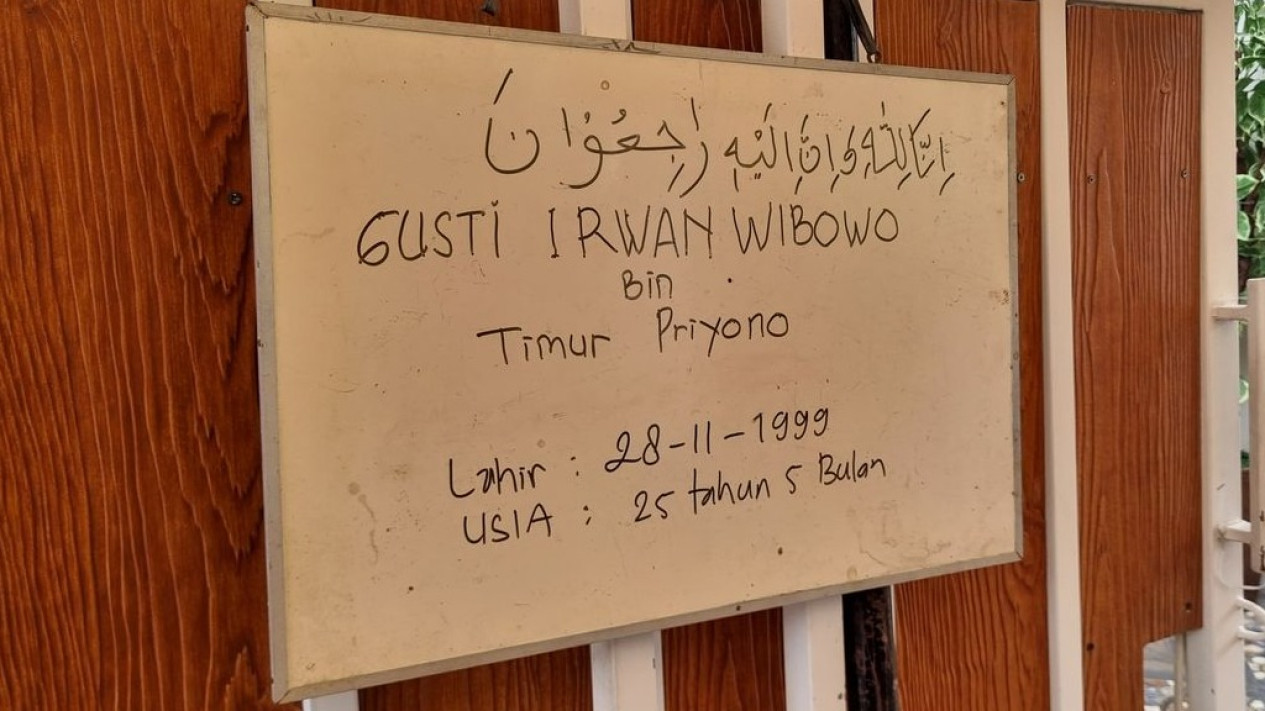 اِنَّا لِلّٰهِ وَاِنَّا اِلَيْهِ رَاجِعُوْانَ
GUSTI IRWAN WIBOWO
Bin
Timur Priyono
Lahir : 28-11-1999
USIA : 25 tahun 5 Bulan